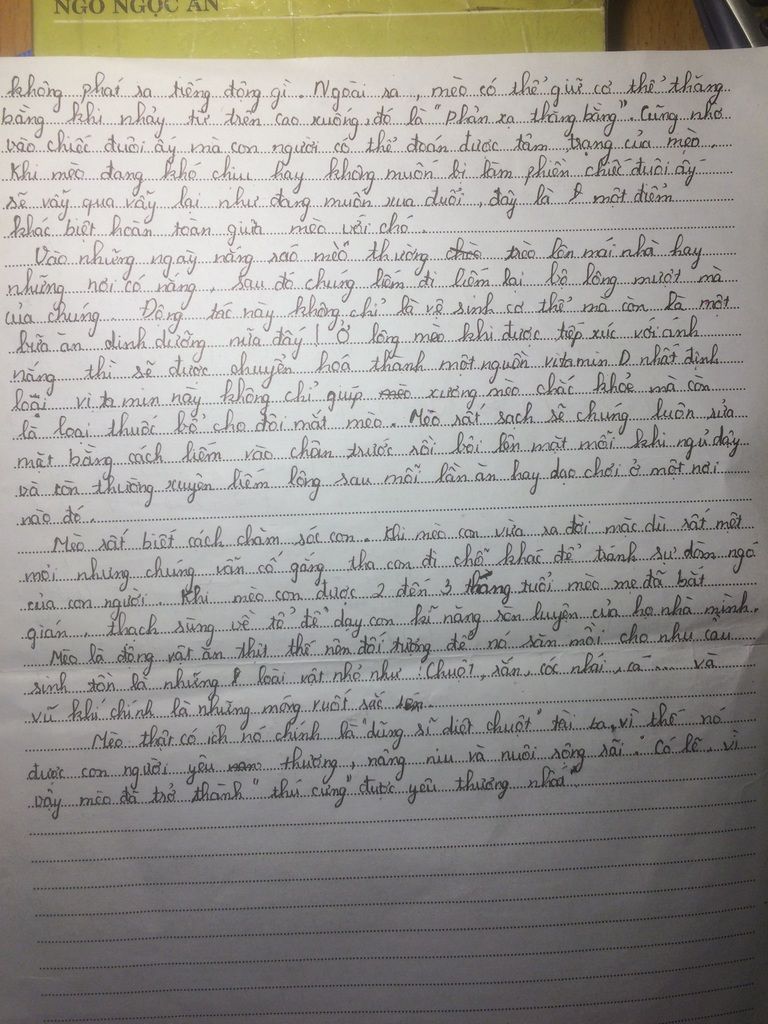 NGÔ NGỌC AN
không phát ra tiếng động gì. Ngoài ra, mèo có thể giữ cơ thể thăng
bằng khi nhảy từ trên cao xuống, đó là "phản xạ thăng bằng". Cũng nhờ
vào chiếc đuôi ấy mà con người có thể đoán được tâm trạng của mèo.
Khi mèo đang khó chịu hay không muốn bị làm phiền chiếc đuôi ấy
sẽ vẫy qua vẫy lại như đang muốn xua đuổi, đây là một điểm
khác biệt hoàn toàn giữa mèo với chó.
Vào những ngày nắng ráo mèo thường trèo lên mái nhà hay
những nơi có nắng, sau đó chúng liếm đi liếm lại bộ lông mượt mà
của chúng. Động tác này không chỉ là vệ sinh cơ thể mà còn là một
bữa ăn dinh dưỡng nữa đấy! Ở lông mèo khi được tiếp xúc với ánh
nắng thì sẽ được chuyển hoá thành một nguồn vitamin D nhất định
loại vitamin này không chỉ giúp xương mèo chắc khoẻ mà còn
là loại thuốc bổ cho đôi mắt mèo. Mèo rất sạch sẽ chúng luôn rửa
mặt bằng cách liếm vào chân trước rồi bôi lên mặt mỗi khi ngủ dậy
và còn thường xuyên liếm lông sau mỗi lần ăn hay dạo chơi ở một nơi
nào đó.
Mèo rất biết cách chăm sóc con. Khi mèo con vừa ra đời mặc dù rất mệt
mỏi nhưng chúng vẫn cố gắng tha con đi chỗ khác để tránh sự dòm ngó
của con người. Khi mèo con được 2 đến 3 tháng tuổi mèo mẹ đã bắt
gián, thạch sùng về tổ để dạy con kĩ năng rèn luyện của họ nhà mình.
Mèo là động vật ăn thịt thế nên đối tượng để nó săn mồi cho nhu cầu
sinh tồn là những loài vật nhỏ như: Chuột, rắn, cóc nhái, cá.... và
vũ khí chính là những móng vuốt sắc
Mèo thật có ích nó chính là "dũng sĩ diệt chuột" tài ba, vì thế nó
được con người yêu thương, nâng niu và nuôi sống rãi. "Có lẽ vì
vậy mèo đã trở thành "thú cưng" được yêu thương nhất"